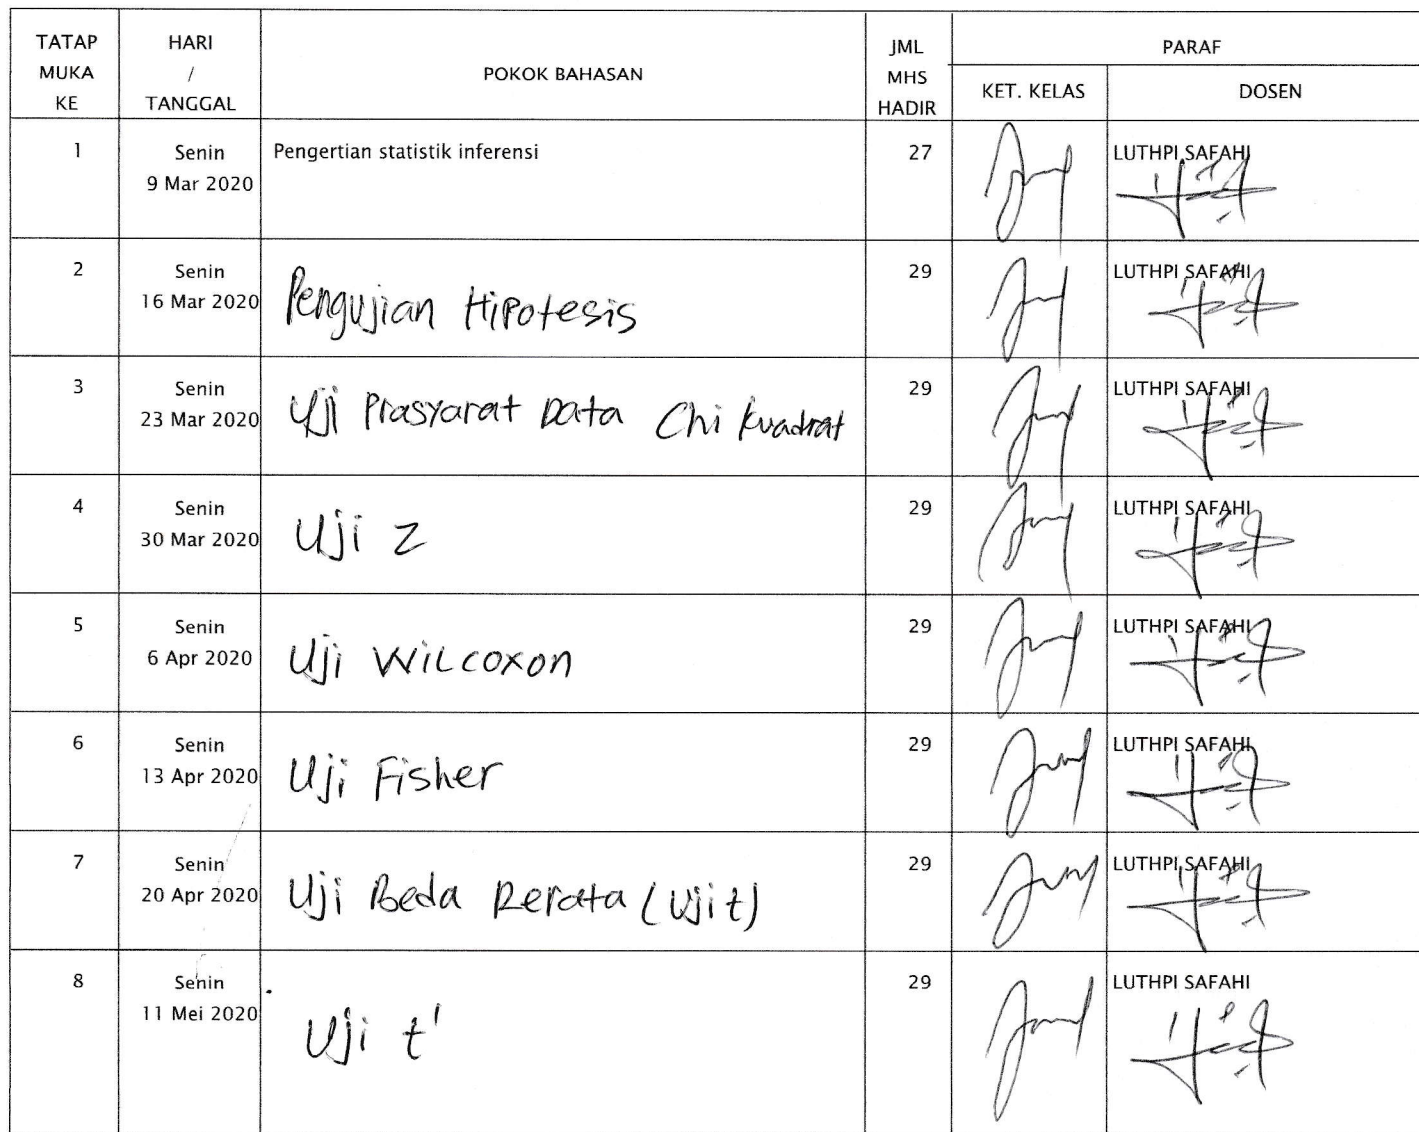 TATAP MUKA KE HARI / TANGGAL POKOK BAHASAN JML MHS HADIR PARAF
KET. KELAS DOSEN
1 Senin 9 Mar 2020 Pengertian statistik inferensi 27 LUTHPI SAFAHI
2 Senin 16 Mar 2020 Pengujian Hipotesis 29 LUTHPI SAFAHI
3 Senin 23 Mar 2020 Uji Prasyarat Data Chi kuadrat 29 LUTHPI SAFAHI
4 Senin 30 Mar 2020 Uji Z 29 LUTHPI SAFAHI
5 Senin 6 Apr 2020 Uji Wilcoxon 29 LUTHPI SAFAHI
6 Senin 13 Apr 2020 Uji Fisher 29 LUTHPI SAFAHI
7 Senin 20 Apr 2020 Uji Beda Rerata (Uji t) 29 LUTHPI SAFAHI
8 Senin 11 Mei 2020 Uji t' 29 LUTHPI SAFAHI